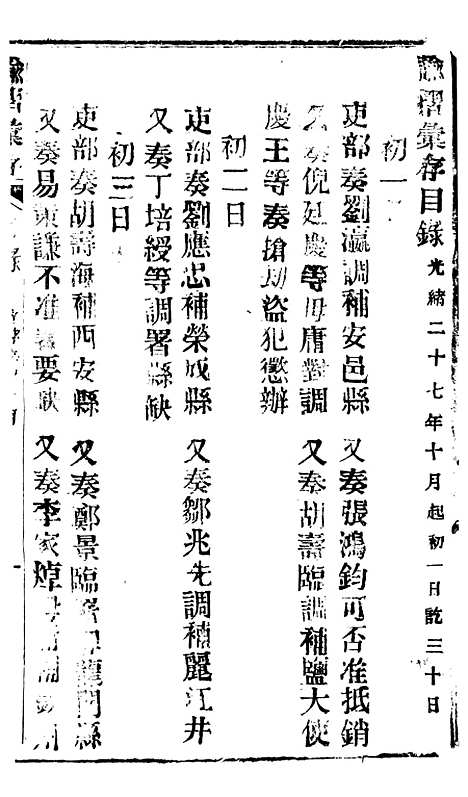 諭摺彙存目錄 光緒二十七年十月起初一日訖三十日
初一
吏部奏劉瀛調補安邑縣 又奏張鴻鈞可否准抵銷
又奏倪廷慶等毋庸對調 又奏胡壽臨調補鹽大使
慶王等奏搶劫盜犯懲辦
初二日
吏部奏劉應忠補榮成縣 又奏鄒兆先調補麗江井
又奏丁培綬等調署縣缺
初三日
吏部奏胡壽海補西安縣 又奏鄭景臨 龍門縣
又奏易東謙不准 要缺 又奏李家焯
諭摺彙存 目錄